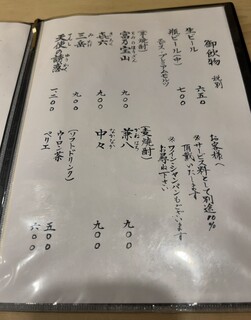 御飲物 税別
生ビール 六五〇
瓶ビール(中) 七〇〇
ヱビス・プレミアムモルツ
(芋焼酎)
富乃宝山 九〇〇
㐂六 九〇〇
三岳 九〇〇
天使の誘惑 一二〇〇
お客様へ
※サービス料として別途10%
頂戴いたします
※ワイン・シャンパンもございます
お尋ね下さい
(麦焼酎)
兼八 九〇〇
中々 九〇〇
(ソフトドリンク)
ウーロン茶 五〇〇
ペリエ 六〇〇